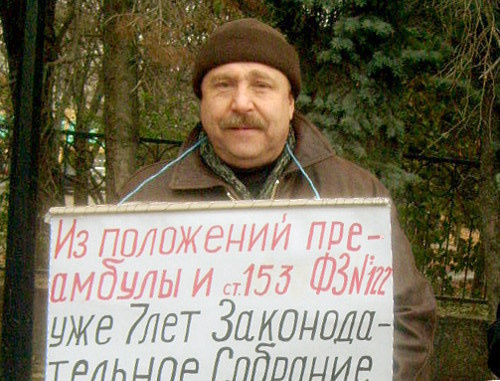 Из положений пре-
амбулы и ст.153 ФЗ№122
уже 7лет Законода-
тельное Собрание